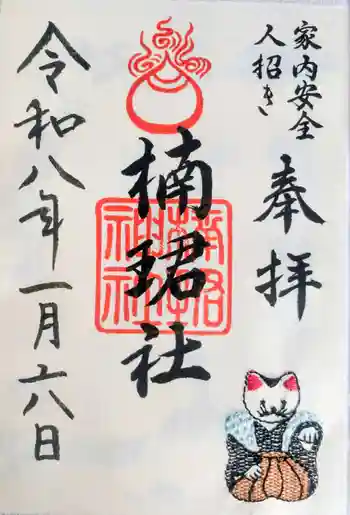 家内安全
人招き
奉拝
楠珺社
令和八年一月六八日